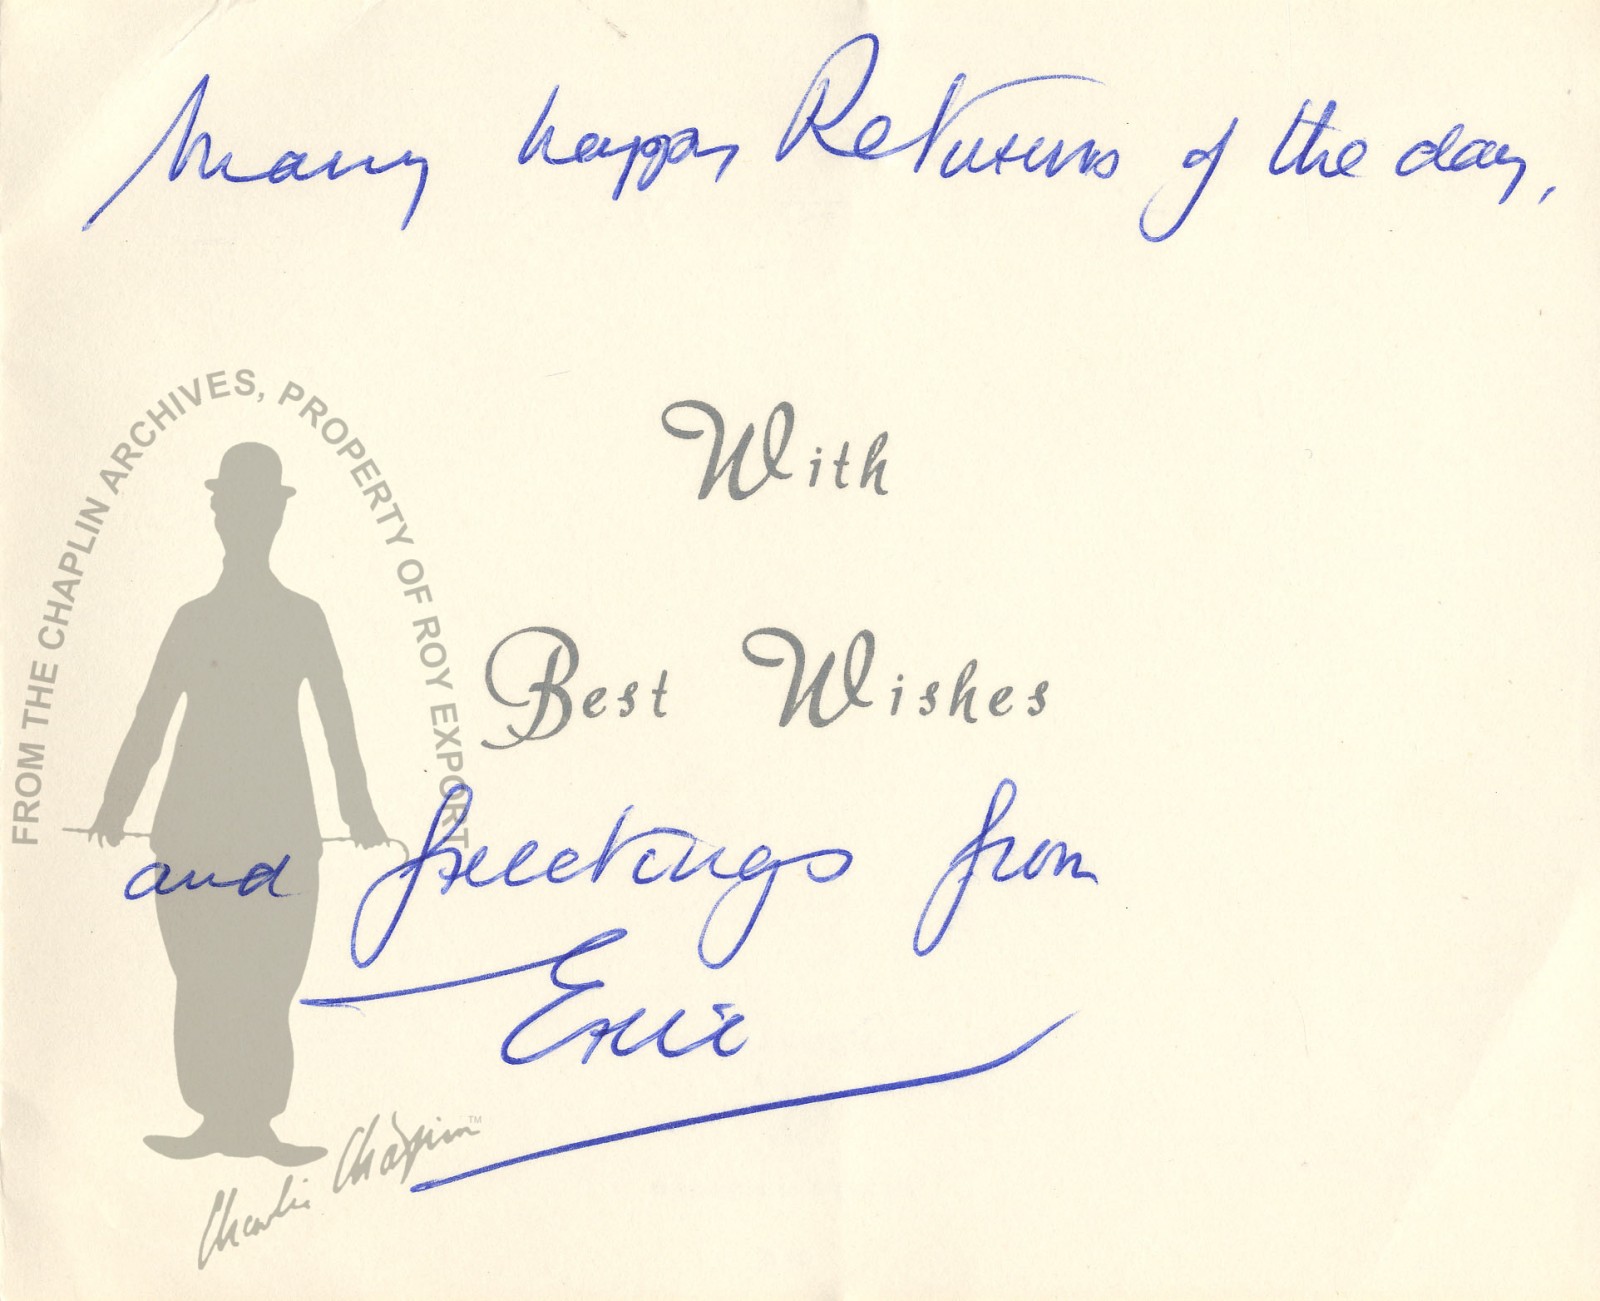 Many happy Returns of the day,
FROM THE CHAPLIN ARCHIVES, PROPERTY OF ROY EXPORT
With
Best Wishes
and greetings from
Eric
Charlie Chaplin™